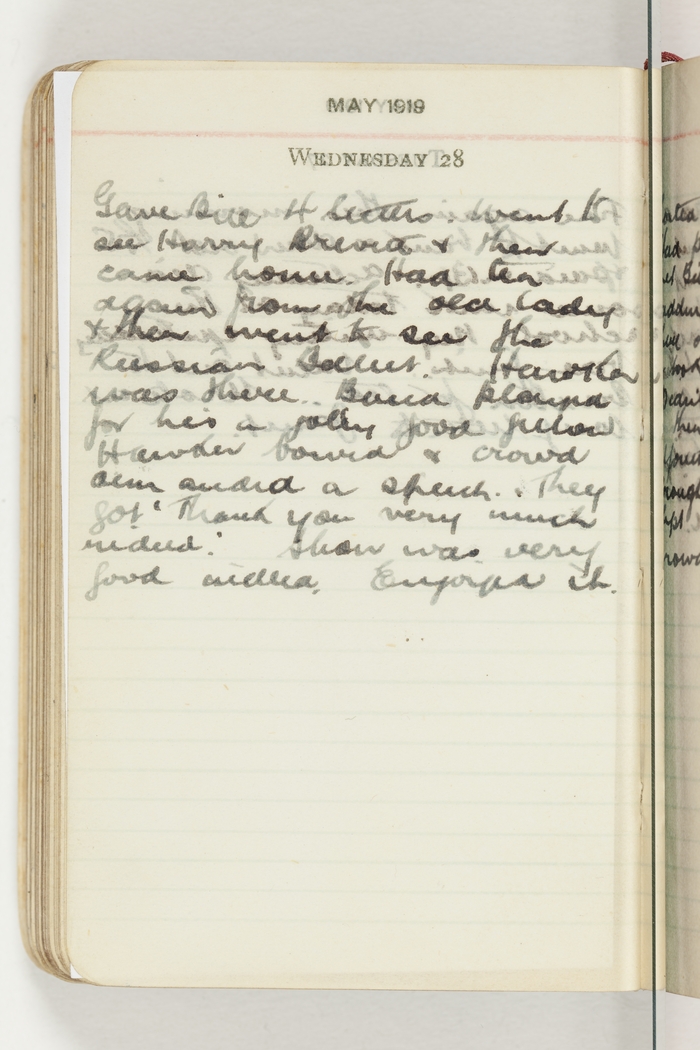 MAY 1919
WEDNESDAY 28
Gave Bill H letters. Went to
see Harry & then
came home. Had tea
again from the old lady
& then went to see the
Russian Ballet. Hawker
was there. Band played
for his a jolly good fellow
Hawker bowed & crowd
demanded a speech. They
got 'Thank you very much
indeed.' Show was very
good indeed. Enjoyed it.